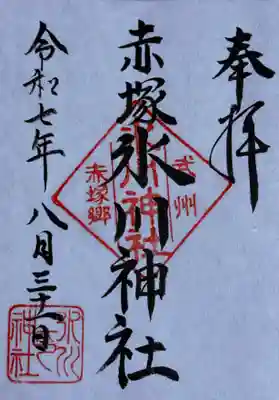 奉拝
武州
氷川神社
赤塚郷
赤塚氷川神社
令和七年八月三十一日